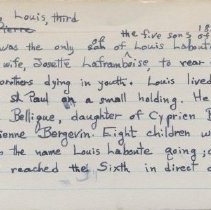 Louis, third
the five sons of
was the only son of Louis Laboute
wife, Josette Laframboise to rear
brothers dying in youth. Louis lived
St Paul on a small holding. He
Bellique, daughter of Cyprien B
ienne Bergevin. Eight children w
o the name Louis Laboute going;
reached the Sixth in direct d